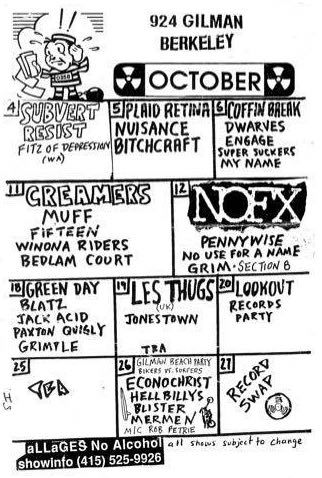 924 GILMAN
BERKELEY
OCTOBER
4 SUBVERT
RESIST
FITZ OF DEPRESSION
(WA)
5 PLAID RETINA
NUISANCE
BITCHCRAFT
6 COFFIN BREAK
DWARVES
ENGAGE
SUPER SUCKERS
MY NAME
11 CREAMERS
MUFF
FIFTEEN
WINONA RIDERS
BEDLAM COURT
12 NOFX
PENNYWISE
NO USE FOR A NAME
GRIM • SECTION 8
18 GREEN DAY
BLATZ
JACK ACID
PAXTON QUIGLY
GRIMPLE
19 LES THUGS
(UK)
JONESTOWN
TBA
20 LOOKOUT
RECORDS
PARTY
25
TBA
26 GILMAN BEACH PARTY
BIKERS VS. SURFERS
ECONOCHRIST
HELLBILLYS
BLISTER
MERMEN
M/C ROB PETRIE
27
RECORD
SWAP
aLLaGES No Alcohol
showinfo (415) 525-9926
all shows subject to change